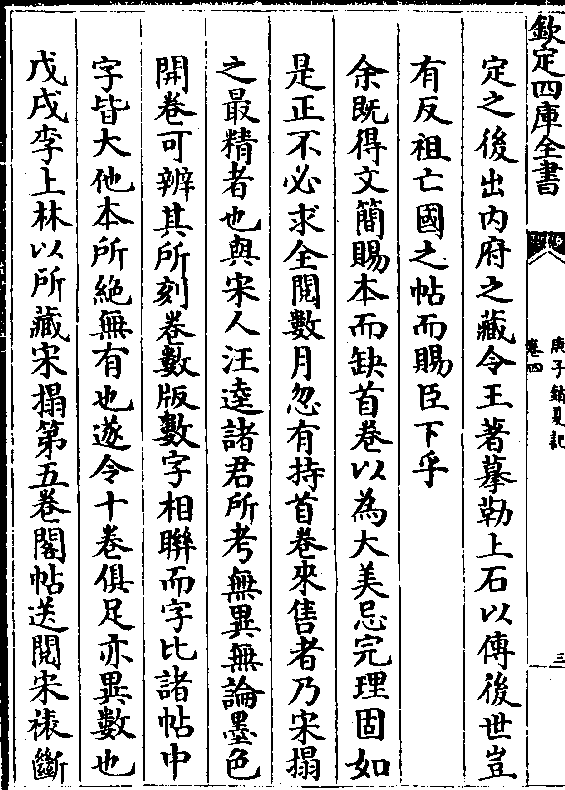 欽定四庫全書
庚子銷夏記
卷四
三
定之後出内府之藏令王著摹勒上石以傳後世豈
有反祖亡國之帖而賜臣下乎
余既得文簡賜本而缺首卷以為大美忌完理固如
是正不必求全閲數月忽有持首卷來售者乃宋搨
之最精者也與宋人汪逵諸君所考無異無論墨色
開卷可辨其所刻卷數版數字相聯而字比諸帖中
字皆大他本所絶無有也遂令十卷俱足亦異數也
戊戌李上林以所藏宋搨第五卷閣帖送閲宋裱斷